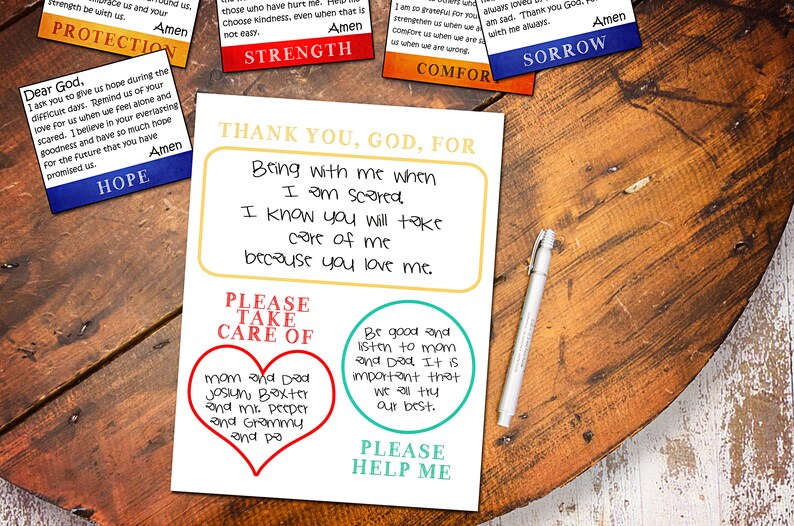 embrace us and your
strength be with us.
Amen
PROTECTION
those who have hurt me. Help me
choose kindness, even when that is
not easy.
Amen
STRENGTH
I am so grateful for your
strengthen us when we are
Comfort us when we are
us when we are wrong.
COMFOR
always loved by
am sad. Thank you God, for
with me always.
Amen
SORROW
Dear God,
I ask you to give us hope during the
difficult days. Remind us of your
love for us when we feel alone and
scared. I believe in your everlasting
goodness and have so much hope
for the future that you have
promised us.
Amen
HOPE
THANK YOU, GOD, FOR
Being with me when
I am scared.
I know you will take
care of me
because you love me.
PLEASE
TAKE
CARE OF
mom and Dad
Joslyn, Baxter
and mr. peeper
and Grammy
and pa
Be good and
listen to mom
and Dad. It is
important that
we all try
our best.
PLEASE
HELP ME